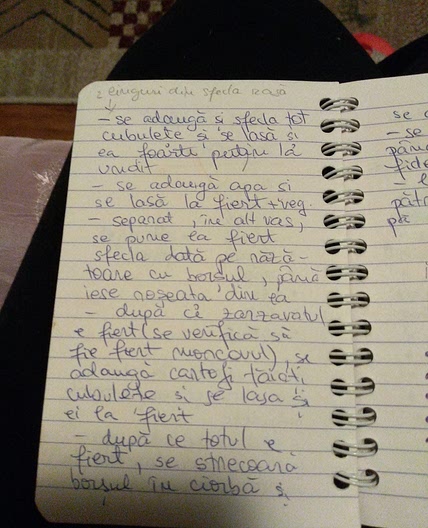 2 linguri din sfecla rasă
- se adaugă și sfecla tot
cubulețe și se lasă și
ea foarte puțin la
undit
- se adaugă apa și
se lasă la fiert + veg.
- separat, în alt vas,
se pune la fiert
sfecla dată pe răză-
toare cu borșul, până
iese roșeata din ea
- după ce zarzavatul
e fiert (se verifică să
fie fiert morcovul), se
adaugă cartofi tăiați
cubulețe și se lasă și
ei la fiert
- după ce totul e
fiert, se strecoară
borșul în ciorbă și
se
- se
până
fide
pătr
pe